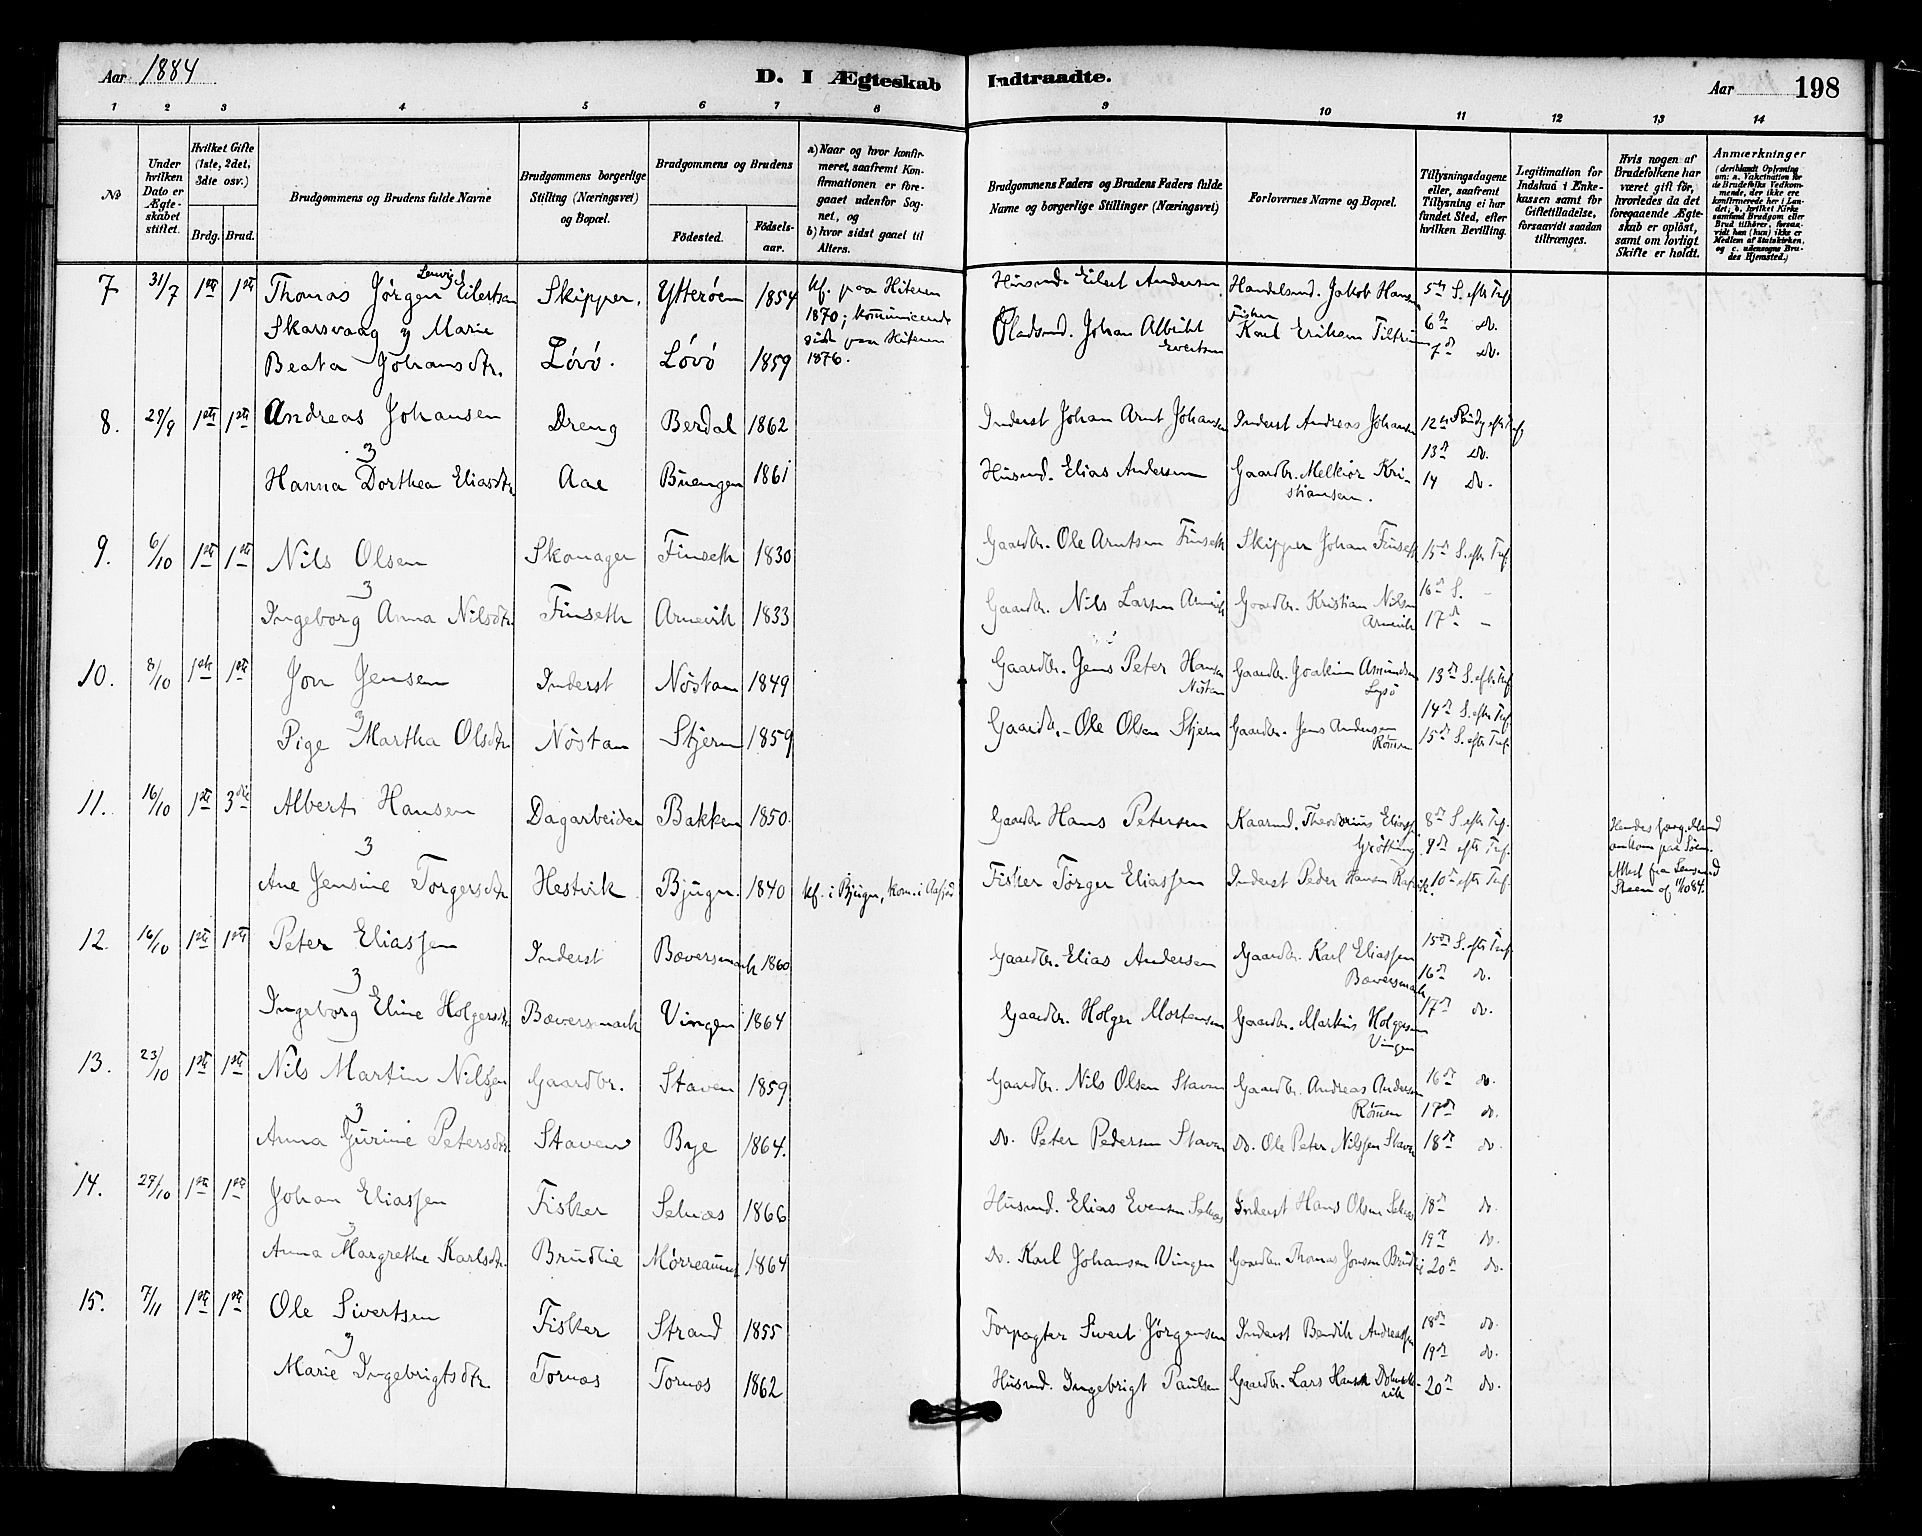 Aar 1884
D. I Ægteskab Indtraadte.
Aar 198
1 2 3 4 5 6 7 8 9 10 11 12 13 14
No
Under hvilken Dato er Ægteskabet stiftet.
Hvilket Gifte (1ste, 2det, 3die osv.)
Brdg. Brud.
Brudgommens og Brudens fulde Navne
Brudgommens borgerlige Stilling (Næringsvei) og Bopæl.
Brudgommens og Brudens
Fødested.
Fødsels-aar.
a) Naar og hvor konfir-
meret, saafremt Kon-
firmationen er fore-
gaaet udenfor Sog-
net, og
b) hvor sidst gaaet til
Alters.
Brudgommens Faders og Brudens Faders fulde
Navne og borgerlige Stillinger (Næringsvei)
Forlovernes Navne og Bopæl.
Tillysningsdagene
eller, saafremt
Tillysning ei har
fundet Sted, efter
hvilken Bevilling.
Legitimation for
Indskud i Enke-
kassen samt for
Giftetilladelse,
forsaavidt saadan
tiltrænges.
Hvis nogen af
Brudefolkene har
været gift før,
hvorledes da det
foregaaende Ægte-
skab er opløst,
samt om lovligt
Skifte er holdt.
Anmærkninger
7 31/7 1ste 1ste Thomas Jørgen Lauvig Eilertsen Skipper. Ytterøen 1854 kf. paa Hiteren Husmd. Eilert Andersen Handelsmd. Jakob Hansen 5te S. eft. Tref.
Skarsvaag & Marie 1870; kommunicerede Pladsmd. Johan Albrikt Fisker Karl Eriksen Tiltrem 6te do.
Beata Johansdtr. Lövö. Lövö 1859 sidst paa Hiteren 1876. Evertsen 7de do.
8. 29/9 1ste 1ste Andreas Johansen Dreng Berdal 1862 Inderst Johan Arnt Johansen Inderst Andreas Johansen 12te Sönd. eft. Tref.
& 13de do.
Hanna Dorthea Eliasdtr. Aae Buengen 1861 Husmd. Elias Andersen Gaardbr. Melkior Kri-
stiansen. 14 do.
9. 6/10 1ste 1ste Nils Olsen Skomager Finseth 1830 Gaardbr. Ole Arntsen Finseth Skipper Johan Finseth 15de S. eft. Tref.
& 16de S. -
Ingeborg Anna Nilsdtr. Finseth Arnevik 1833 Gaardbr. Nils Larsen Arnevik Gaardbr. Kristian Nilsen Arnevik 17de -
10. 8/10 1ste 1ste Jon Jensen Inderst Nöstan 1849 Gaardbr. Jens Peter Hansen Nöstan Gaardbr. Joakim Amundsen Lysö 13de S. eft. Tref.
& 14de S. eft. Tref.
Pige Martha Olsdtr. Nöstan Stjern 1859 Gaardbr. Ole Olsen Stjern Gaardbr. Jens Andersen Römen 15de S. eft. Tref.
11. 16/10 1ste 3die Albert Hansen Dagarbeider Bakken 1850. Gaardbr. Hans Petersen Kaarmd. Theodorius Eliassen Grötting 8de S. eft. Tref. Hendes forrig. Mand
& 9de eft. Tref. omkom paa Söen.
Ane Jensine Torgersdtr. Hestvik Bjugn. 1840 kf. i Bjugn, kom. i Aafjord Fisker Törger Eliassen Inderst Peder Hansen 10de eft. Tref. Attest fra Lensmand
Steen af 11/10 84.
12. 16/10 1ste 1ste Peter Eliassen Inderst Bæversmark 1860 Gaardbr. Elias Andersen Gaardbr. Karl Eliassen Bæversmark 15de S. eft. Tref.
& 16de do.
Ingeborg Eline Holgersdtr. Bæversmark Vingen 1864 Gaardbr. Holger Mortensen Gaardbr. Markus Holgersen Vingen 17de do.
13. 23/10 1ste 1ste Nils Martin Nilssen Gaardbr. Staven 1859 Gaardbr. Nils Olsen Staven Gaardbr. Andreas Andersen Römen 16de do.
& 17de do.
Anna Gurine Petersdtr. Staven Bye 1864. Do. Peter Pedersen Staven Do. Ole Peter Nilssen Staven 18de do.
14. 29/10 1ste 1ste Johan Eliassen Fisker Selnæs 1866 Husmd. Elias Evensen Selnæs Inderst Hans Olsen Selnæs 18de do.
& 19de do.
Anna Margrethe Karlsdtr. Brudlie Mörreaunet 1864 Do. Karl Johansen Vingen Gaardbr. Thomas Jonsen Brudlie 20de do.
15. 7/11 1ste 1ste Ole Sivertsen Fisker Strand 1855 Forpagter Sivert Jörgensen Inderst Bendik Andreassen 18de do.
& 19de do.
Marie Ingebrigtsdtr. Tornæs Tornæs 1862 Husmd. Ingebrigt Paulsen Gaardbr. Lars Hansen 20de do.